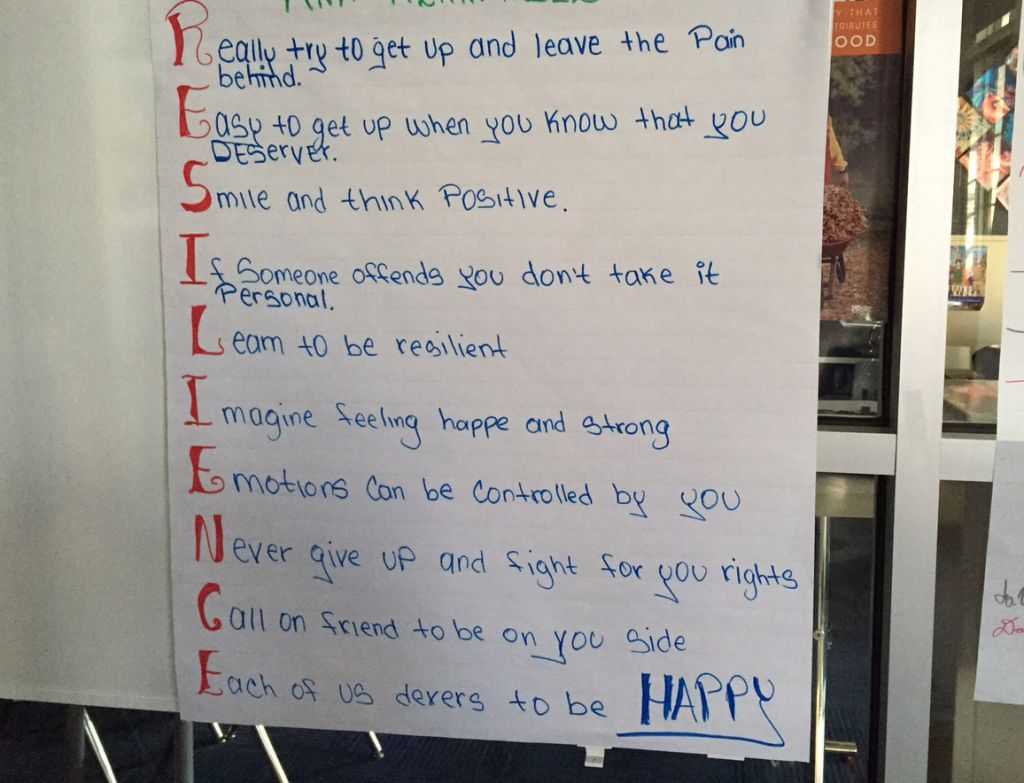 Really try to get up and leave the Pain
behind.
Easy to get up when you know that you
DEServer.
Smile and think Positive.
If Someone offends you don't take it
Personal.
Learn to be resilient
Imagine feeling happe and strong
Emotions Can be Controlled by you
Never give up and fight for you rights
Call on friend to be on you side
Each of us derers to be HAPPY
Y THAT
TRIBUTES
OOD